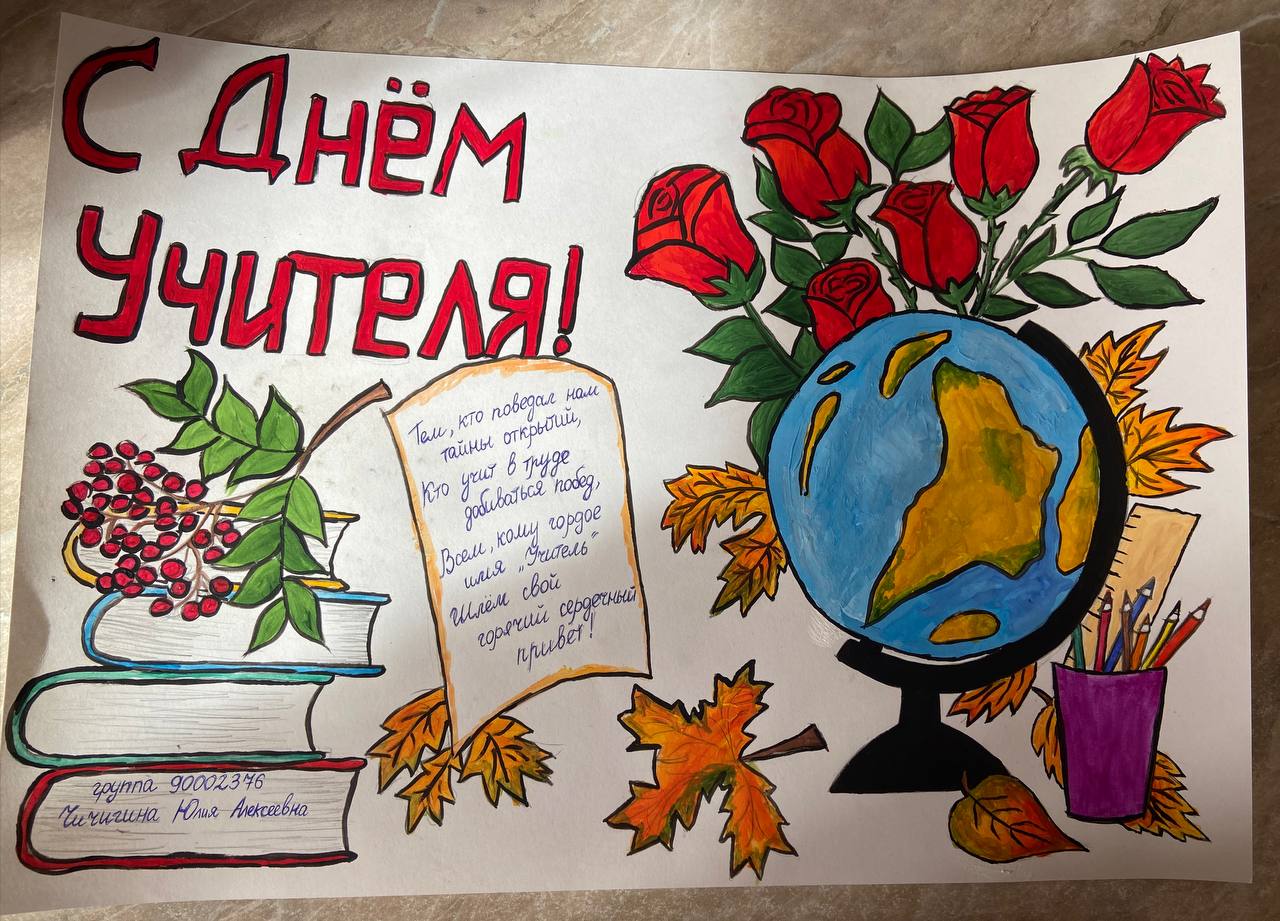 С Днём
Учителя!
Тем, кто поведал нам
тайны открытий,
Кто учит в труде
добиваться побед,
Всем, кому гордое
имя „Учитель"
Шлём свой
горячий сердечный
привет!
группа 90002376
Чичигина Юлия Алексеевна